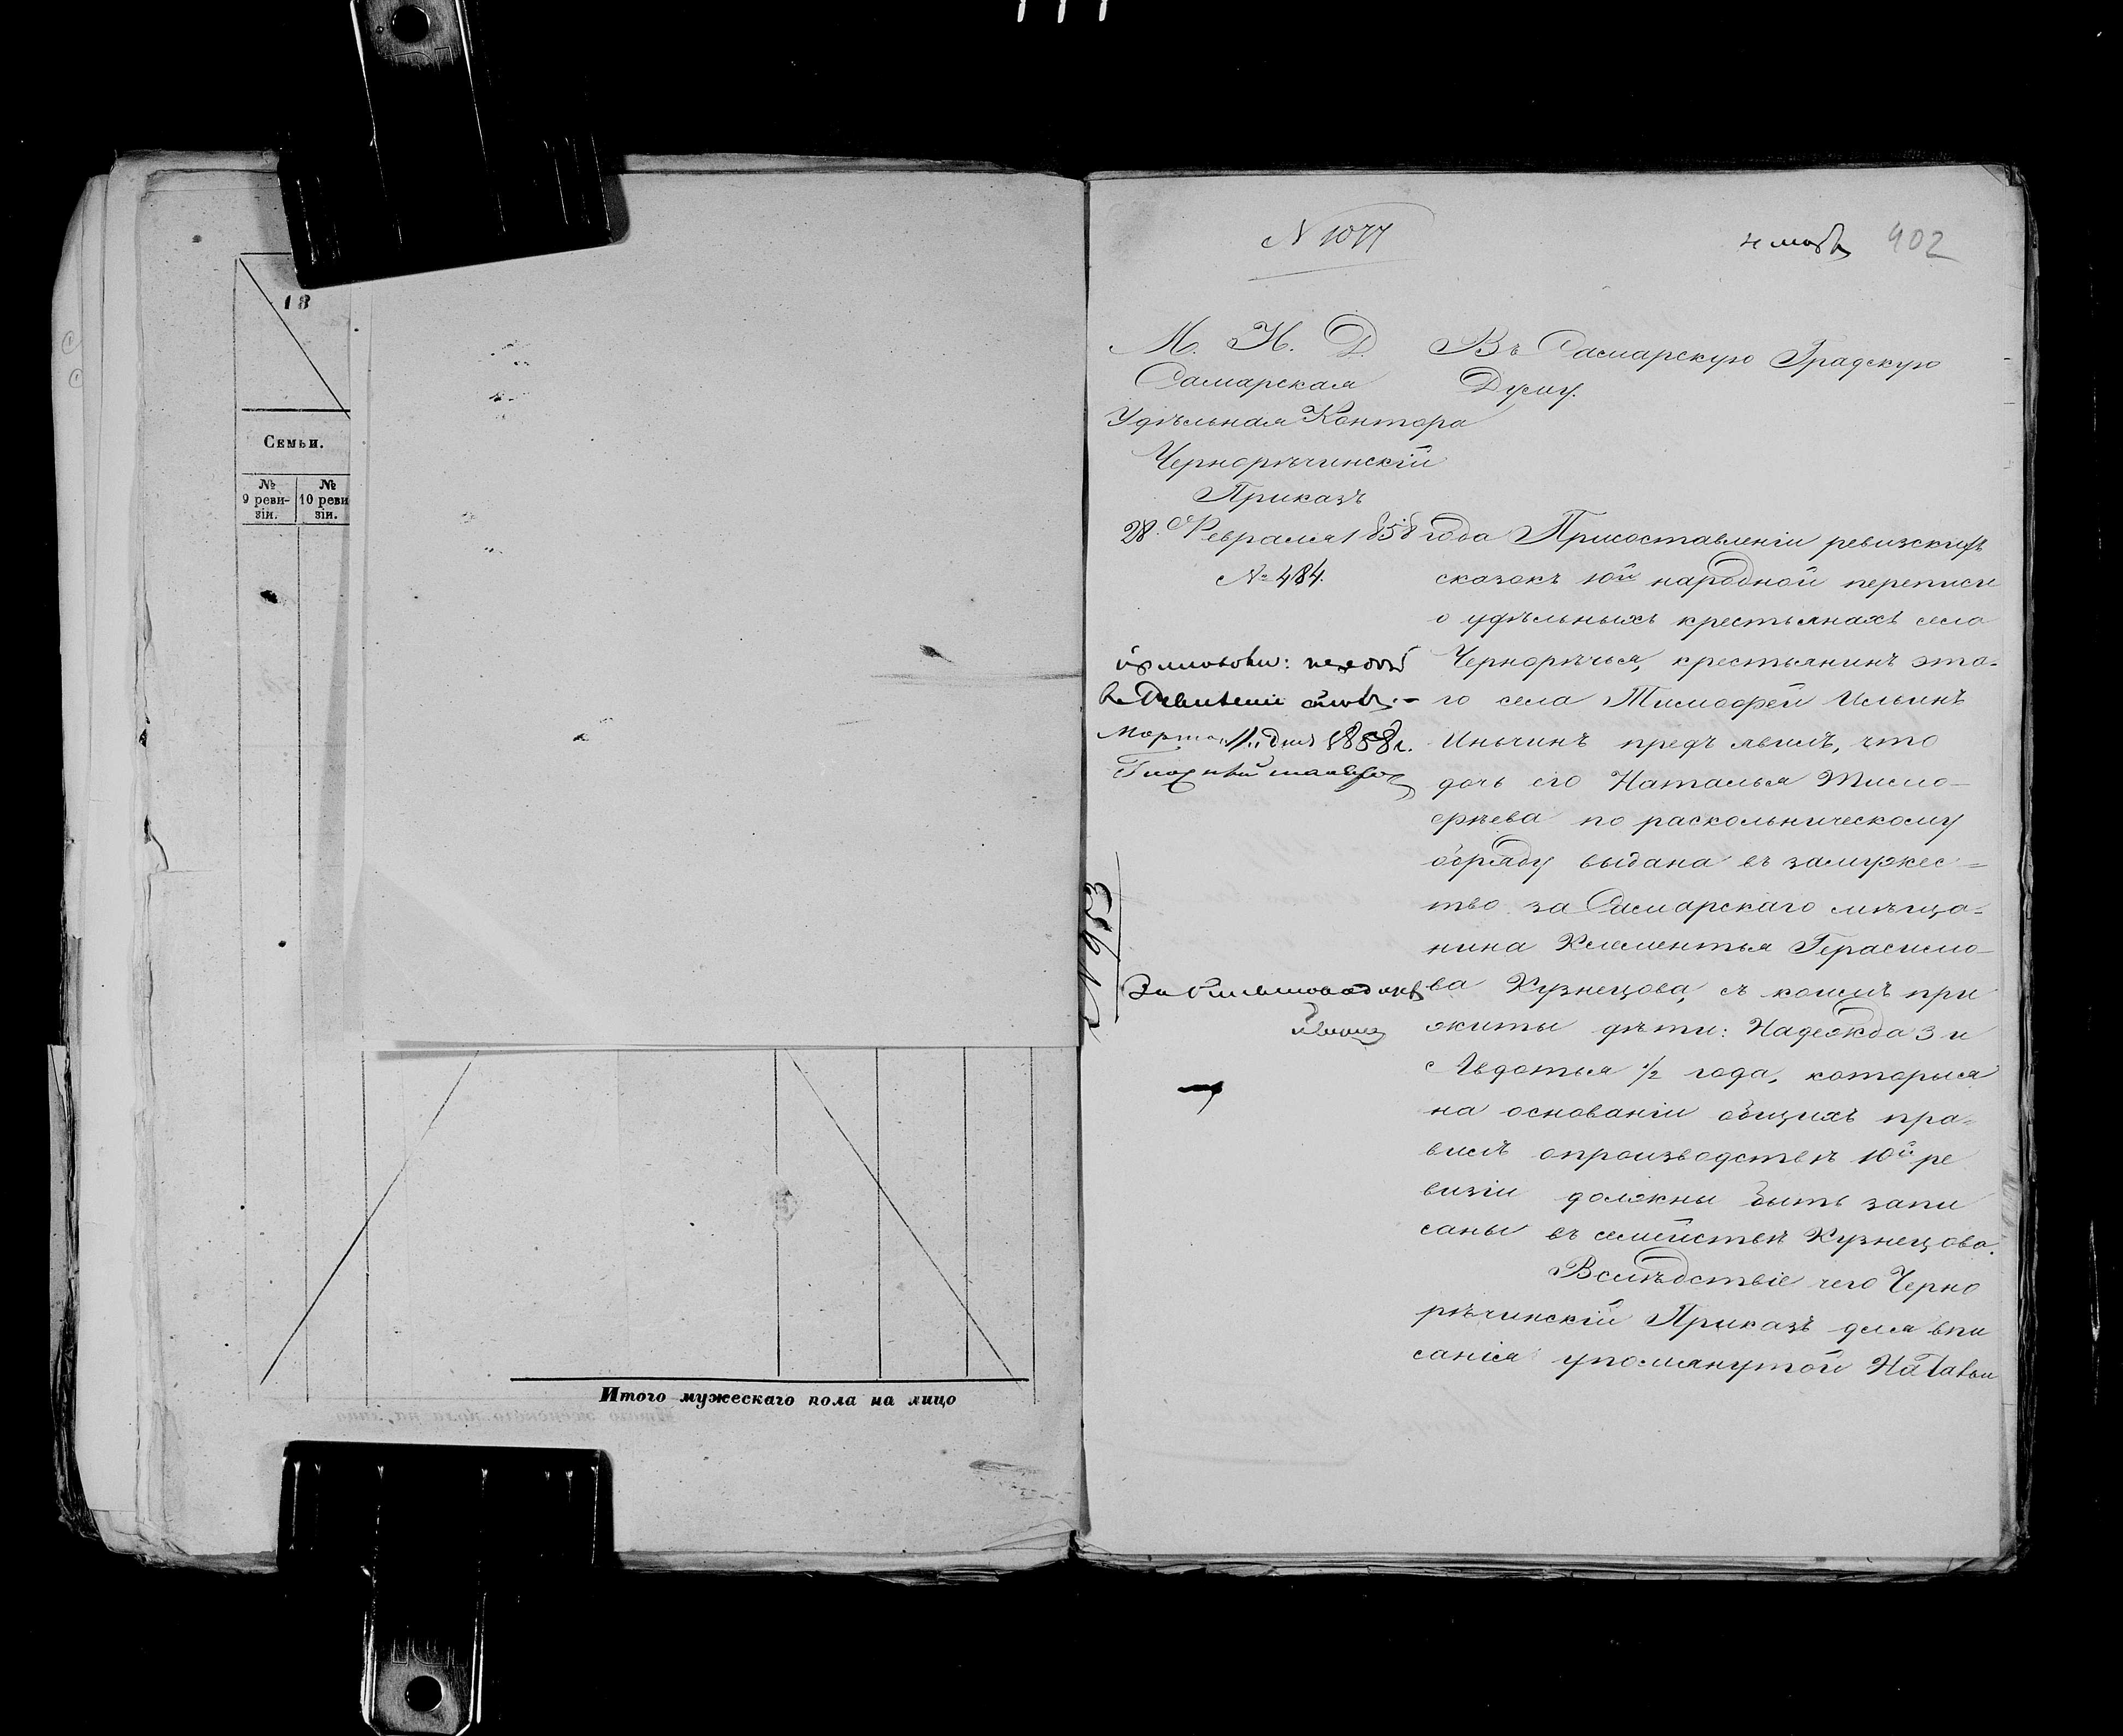 18
Семьи.
№ 9 реви-зіи.
№ 10 реви зіи.
Итого мужескаго пола на лицо
N 1077
402
М. И. Д.
Самарская
Удѣльная Контора
Чернорѣчинскій
Приказъ
28. Февраля 1858 года
№ 484.
Марта 11 дня 1858 г.
N 953
Въ Самарскую Градскую
Думу.
При составленіи ревизскихъ
сказокъ 10й народной переписи
о удѣльныхъ крестьянахъ села
Чернорѣчья, крестьянинъ эта-
го села Тимофей Ильинъ
Иньчинъ предъявилъ, что
дочь его Наталья Тимо-
фѣева по раскольническому
обряду выдана въ замужес=
тво за Самарскаго мѣща=
нина Клементья Герасимо-
ва Кузнецова, съ коимъ при
житы дѣти: Надежда 3 и
Авдотья 1/2 года, которыя
на основаніи общихъ пра-
вилъ о производствѣ 10й ре
визіи должны быть запи
саны въ семействѣ Кузнецова.
Вслѣдствіе чего Черно
рѣчинскій Приказъ для впи
санія упомянутой Натальи